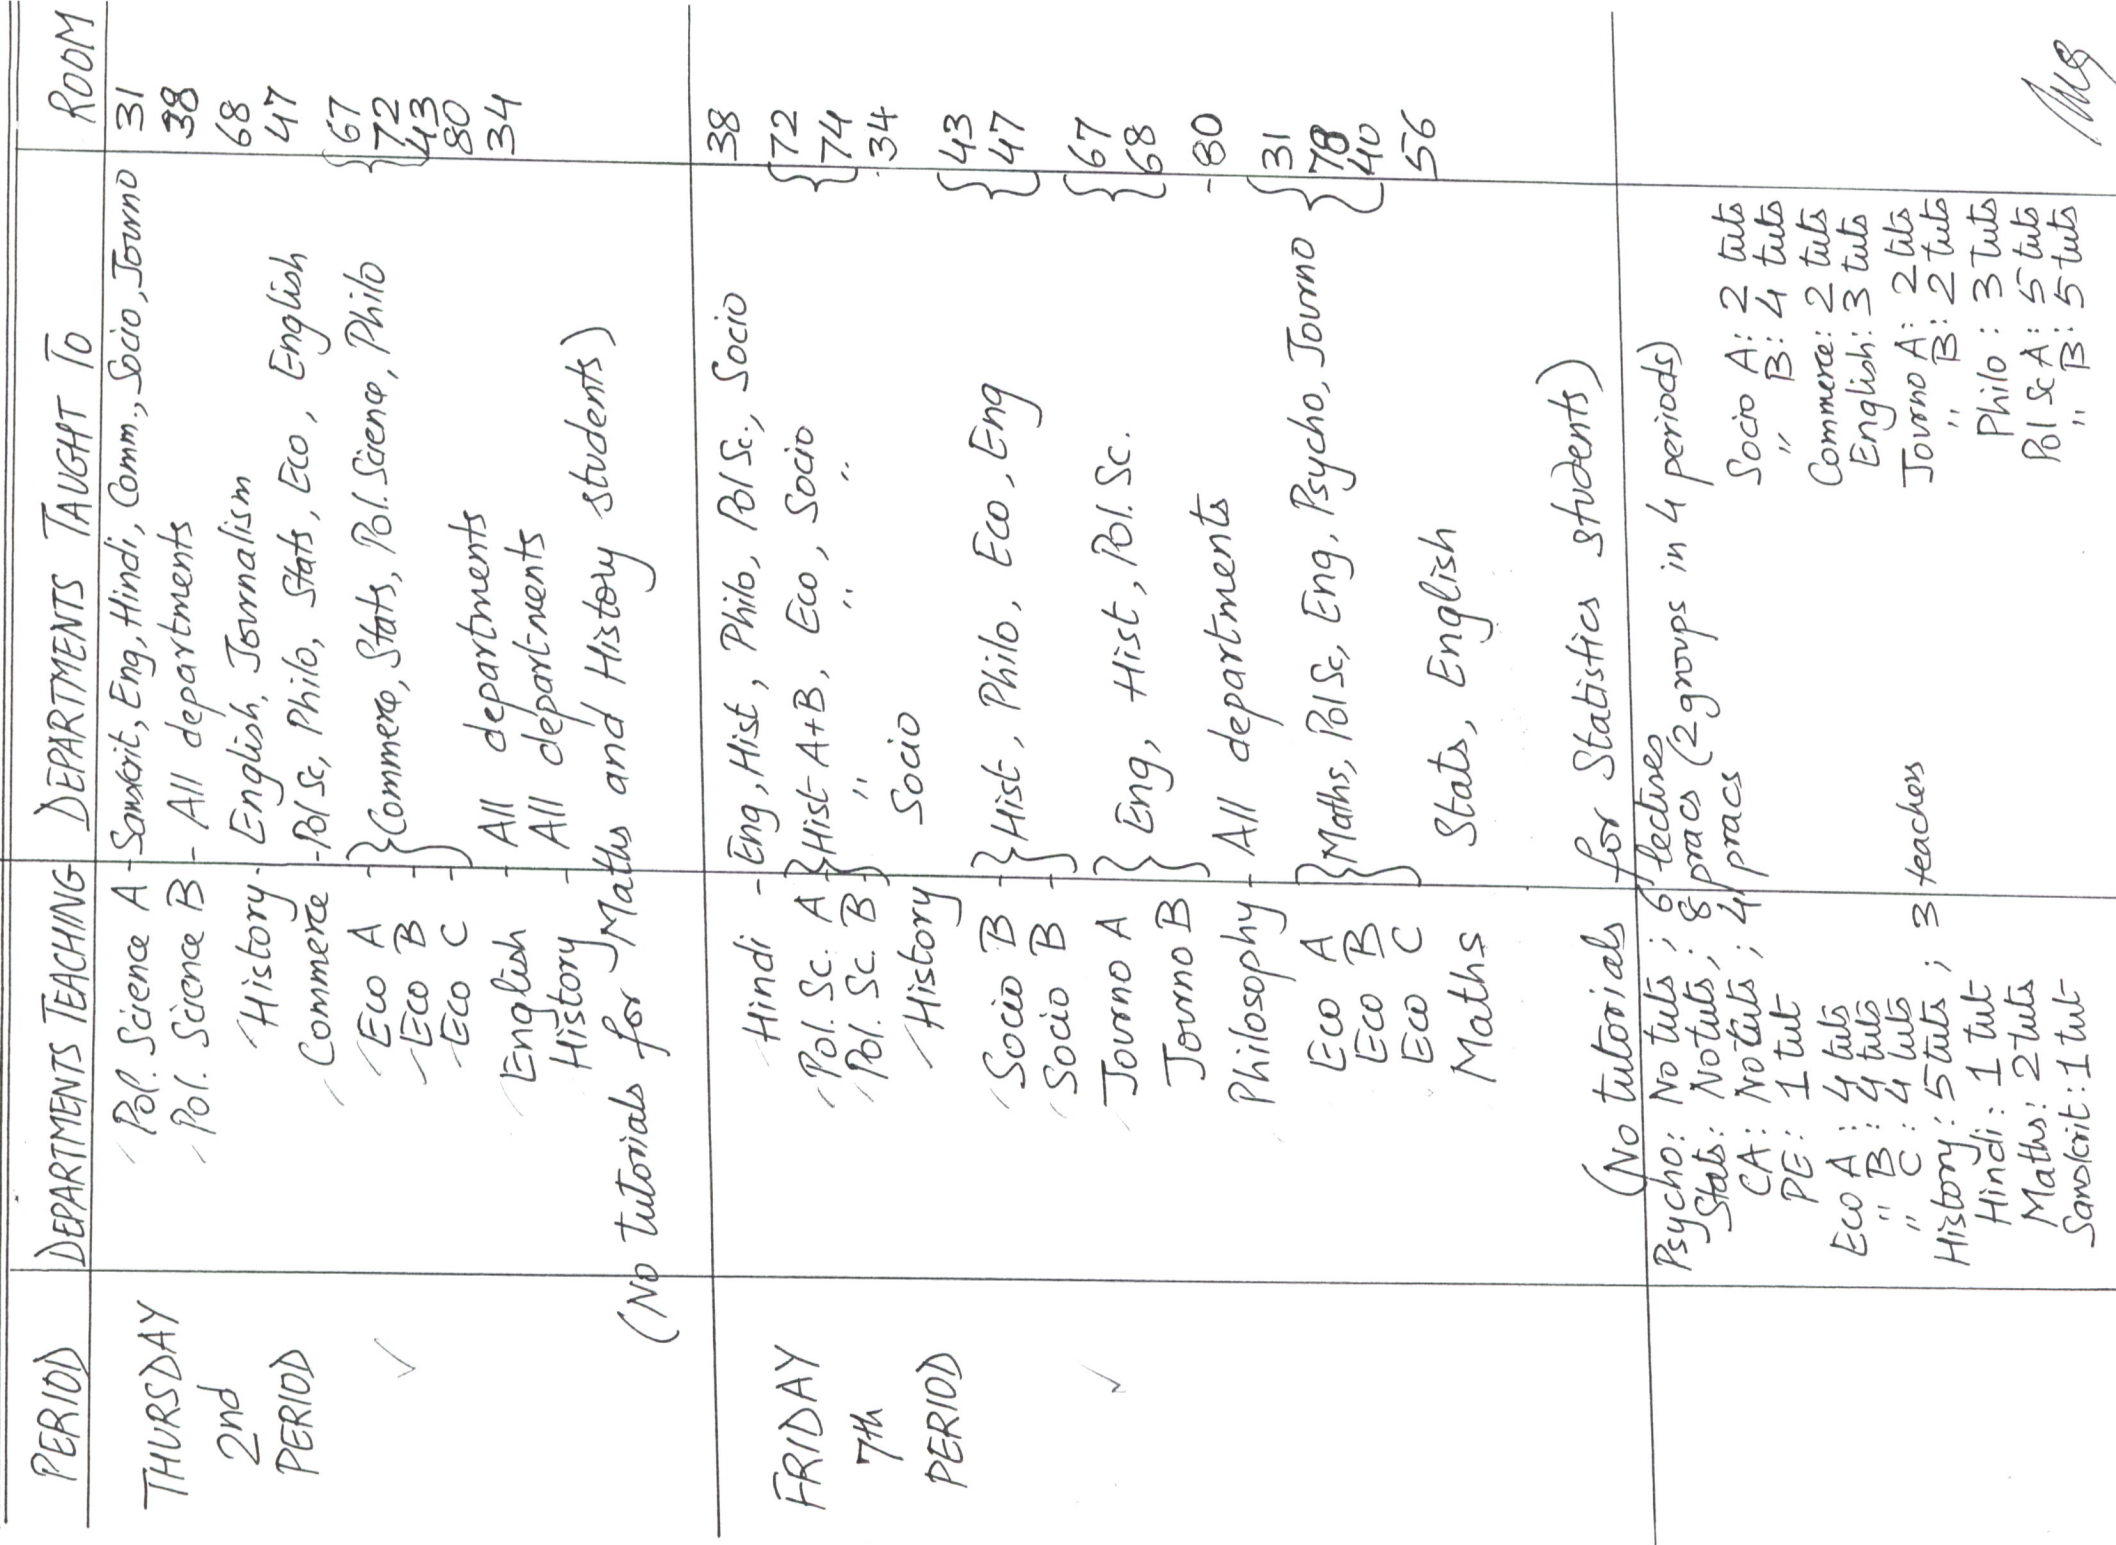 PERIOD DEPARTMENTS TEACHING DEPARTMENTS TAUGHT TO ROOM
THURSDAY 2nd PERIOD
Pol. Science A - Sanskrit, Eng, Hindi, Comm., Socio, Journo 31
Pol. Science B - All departments 38
History - English, Journalism 68
Commerce - Pol Sc, Philo, Stats, Eco, English 47
Eco A } Commerce, Stats, Pol. Science, Philo { 67
Eco B 72
Eco C 43
English - All departments 80
History - All departments 34
(No tutorials for Maths and History students)
FRIDAY 7th PERIOD
Hindi - Eng, Hist, Philo, Pol Sc., Socio 38
Pol. Sc. A } Hist A+B, Eco, Socio { 72
Pol. Sc. B } " " " { 74
History Socio 34
Socio B } Hist, Philo, Eco, Eng { 43
Socio B 47
Journo A } Eng, Hist, Pol. Sc. { 67
Journo B 68
Philosophy - All departments - 80
Eco A } Maths, Pol Sc, Eng, Psycho, Journo { 31
Eco B 78
Eco C 40
Maths Stats, English 56
(No tutorials for Statistics students)
Psycho: No tuts; 6 lectures
Stats: No tuts; 8 pracs (2 groups in 4 periods)
CA: No tuts; 4 pracs
PE: 1 tut
Eco A: 4 tuts
" B: 4 tuts
" C: 4 tuts
History: 5 tuts; 3 teachers
Hindi: 1 tut
Maths: 2 tuts
Sanskrit: 1 tut
Socio A: 2 tuts
" B: 4 tuts
Commerce: 2 tuts
English: 3 tuts
Journo A: 2 tuts
" B: 2 tuts
Philo: 3 tuts
Pol Sc A: 5 tuts
" B: 5 tuts